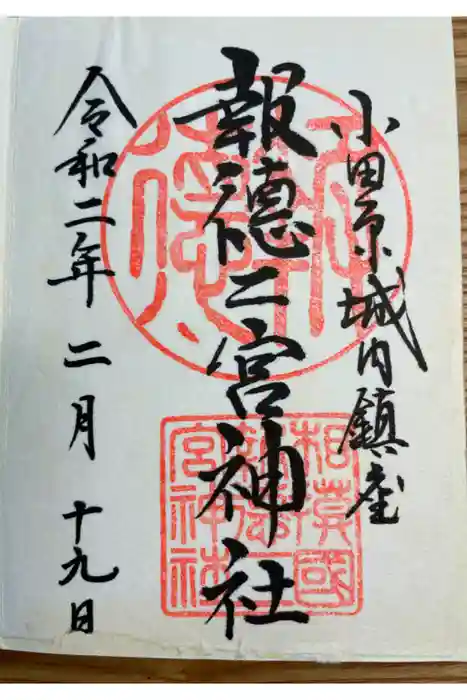 小田原城内鎮座
報徳二宮神社
令和二年 二月 十九日
相模國
報徳二
宮神社